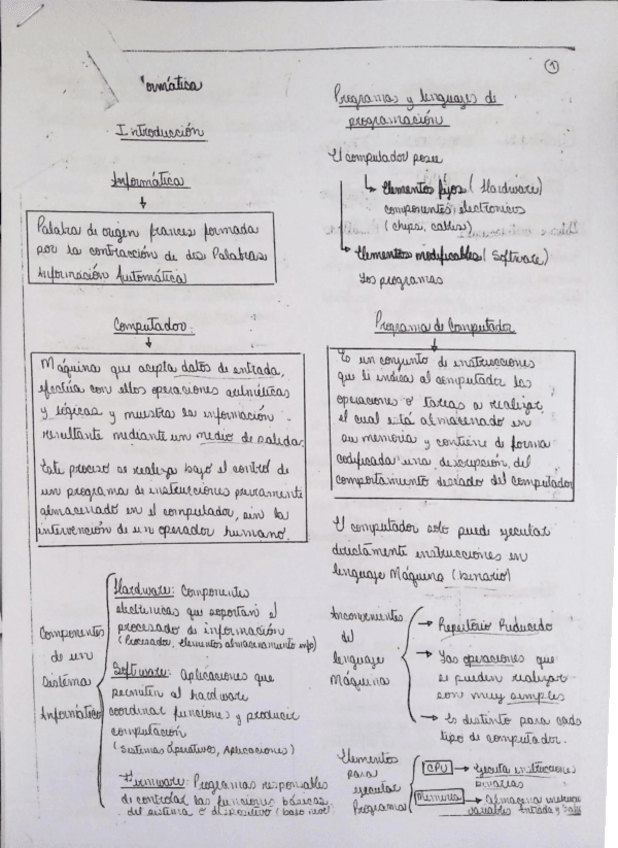 ormática
Introducción
Informática
Palabra de origen frances formada
por la contracción de dos Palabras
Información Automática
Computador
Máquina que acepta datos de entrada,
efectúa con ellos operaciones aritméticas
y lógicas y muestra la información
resultante mediante un medio de salida.
Este proceso se realiza bajo el control de
un programa de instrucciones previamente
almacenado en el computador, sin la
intervención de un operador humano.
Componentes
de un
Sistema
Informático
Hardware: Componentes
electrónicas que soportan el
procesado de información
(Procesador, elementos almacenamiento info)
Software: Aplicaciones que
permiten al hardware
coordinar funciones y producir
computación
(Sistemas Operativos, Aplicaciones)
Firmware: Programas responsables
de controlar las funciones básicas
del sistema o dispositivo (bajo nivel)
1
Programas y lenguajes de
programación
El computador posee
Elementos fijos (Hardware)
componentes electronicos
(chips, cables)
Elementos modificables (Software)
Los programas
Programa de Computador
Es un conjunto de instrucciones
que le indica al computador las
operaciones o tareas a realizar,
el cual está almacenado en
su memoria y contiene de forma
codificada una descripción del
comportamiento deseado del computador
El computador solo puede ejecutar
directamente instrucciones en
lenguaje Máquina (binario)
Inconvenientes
del
lenguaje
Máquina
Repertorio Reducido
Las operaciones que
se pueden realizar
son muy simples
Es distinto para cada
tipo de computador.
Elementos
para
ejecutar
Programas
CPU → Ejecuta instrucciones
binarias
Memoria → Almacena
variables Entrada y